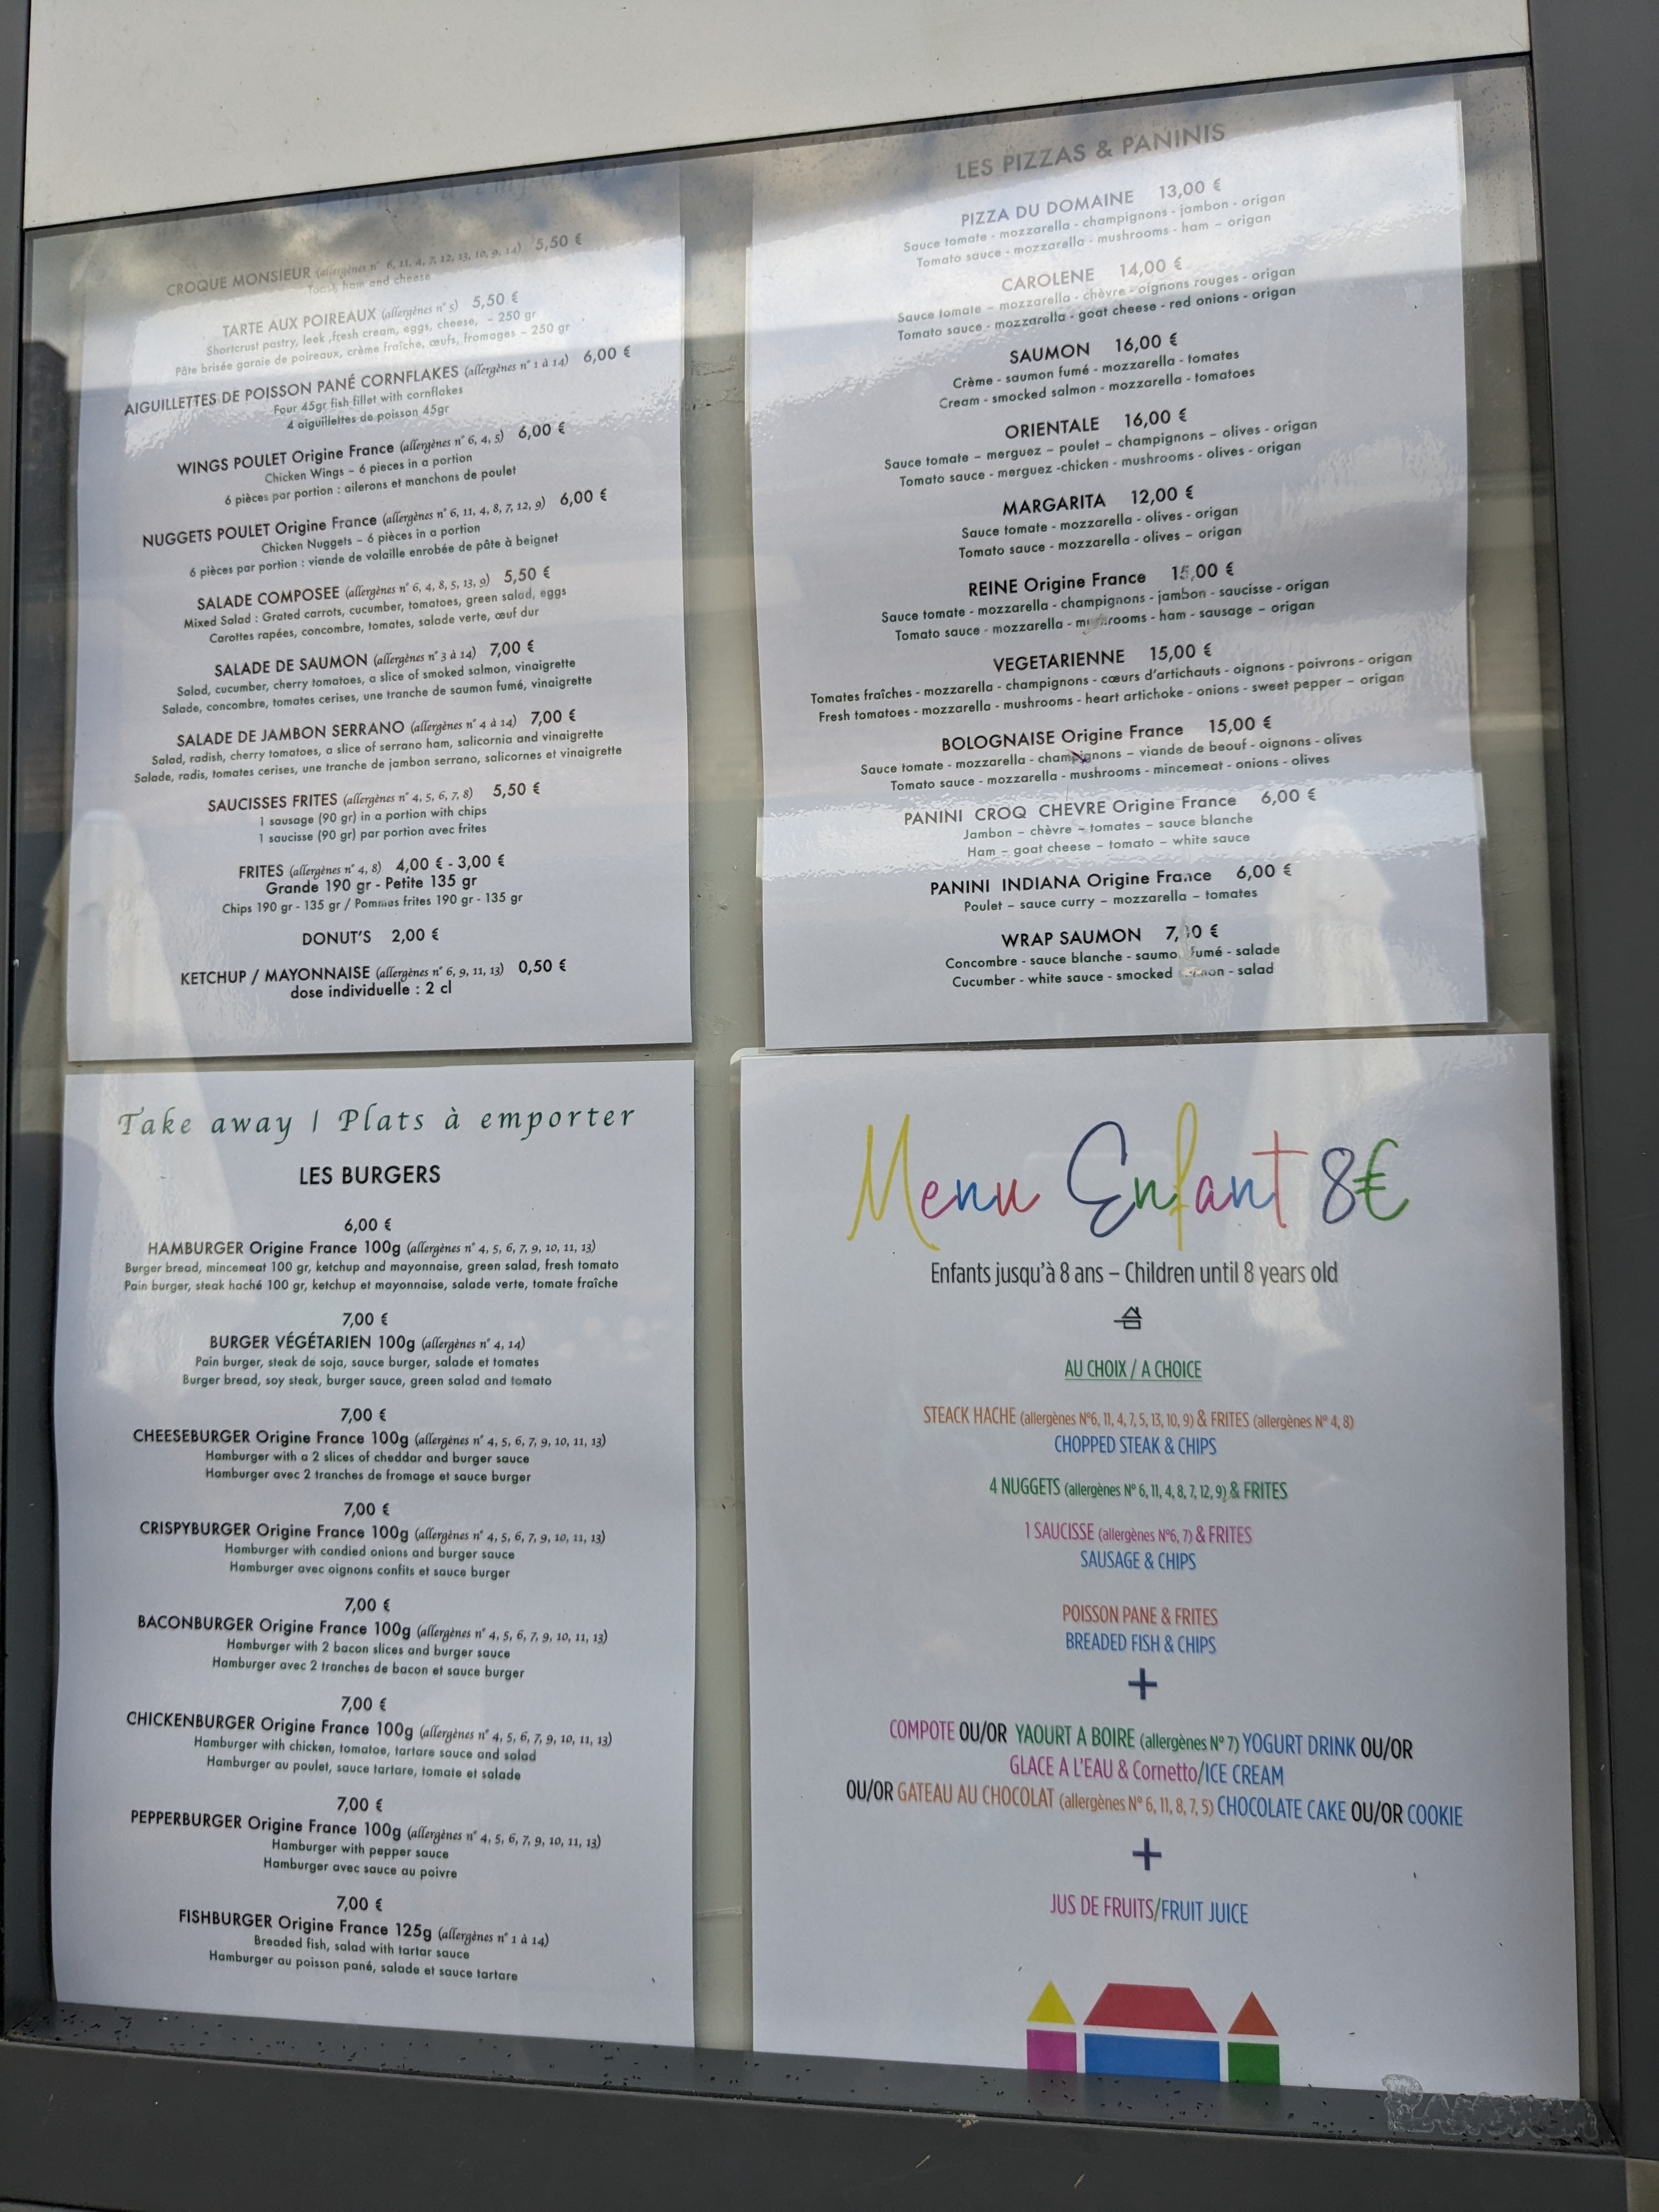 CROQUE MONSIEUR (allergènes n° 6, 11, 4, 7, 12, 13, 10, 9, 14) 5,50 €
Toast, ham and cheese
TARTE AUX POIREAUX (allergènes n° 5) 5,50 €
Shortcrust pastry, leek ,fresh cream, eggs, cheese, - 250 gr
Pâte brisée garnie de poireaux, crème fraîche, œufs, fromages – 250 gr
AIGUILLETTES DE POISSON PANÉ CORNFLAKES (allergènes n° 1 à 14) 6,00 €
Four 45gr fish fillet with cornflakes
4 aiguillettes de poisson 45gr
WINGS POULET Origine France (allergènes n° 6, 4, 5) 6,00 €
Chicken Wings – 6 pieces in a portion
6 pièces par portion : ailerons et manchons de poulet
NUGGETS POULET Origine France (allergènes n° 6, 11, 4, 8, 7, 12, 9) 6,00 €
Chicken Nuggets – 6 pièces in a portion
6 pièces par portion : viande de volaille enrobée de pâte à beignet
SALADE COMPOSEE (allergènes n° 6, 4, 8, 5, 13, 9) 5,50 €
Mixed Salad : Grated carrots, cucumber, tomatoes, green salad, eggs
Carottes rapées, concombre, tomates, salade verte, œuf dur
SALADE DE SAUMON (allergènes n° 3 à 14) 7,00 €
Salad, cucumber, cherry tomatoes, a slice of smoked salmon, vinaigrette
Salade, concombre, tomates cerises, une tranche de saumon fumé, vinaigrette
SALADE DE JAMBON SERRANO (allergènes n° 4 à 14) 7,00 €
Salad, radish, cherry tomatoes, a slice of serrano ham, salicornia and vinaigrette
Salade, radis, tomates cerises, une tranche de jambon serrano, salicornes et vinaigrette
SAUCISSES FRITES (allergènes n° 4, 5, 6, 7, 8) 5,50 €
1 sausage (90 gr) in a portion with chips
1 saucisse (90 gr) par portion avec frites
FRITES (allergènes n° 4, 8) 4,00 € - 3,00 €
Grande 190 gr - Petite 135 gr
Chips 190 gr - 135 gr / Pommes frites 190 gr - 135 gr
DONUT'S 2,00 €
KETCHUP / MAYONNAISE (allergènes n° 6, 9, 11, 13) 0,50 €
dose individuelle : 2 cl
LES PIZZAS & PANINIS
PIZZA DU DOMAINE 13,00 €
Sauce tomate - mozzarella - champignons - jambon - origan
Tomato sauce - mozzarella - mushrooms - ham – origan
CAROLENE 14,00 €
Sauce tomate – mozzarella - chèvre - oignons rouges - origan
Tomato sauce - mozzarella - goat cheese - red onions - origan
SAUMON 16,00 €
Crème - saumon fumé - mozzarella - tomates
Cream - smocked salmon - mozzarella - tomatoes
ORIENTALE 16,00 €
Sauce tomate – merguez – poulet – champignons – olives - origan
Tomato sauce - merguez -chicken - mushrooms - olives - origan
MARGARITA 12,00 €
Sauce tomate - mozzarella - olives - origan
Tomato sauce - mozzarella - olives – origan
REINE Origine France 15,00 €
Sauce tomate - mozzarella - champignons - jambon - saucisse - origan
Tomato sauce - mozzarella - mushrooms - ham - sausage – origan
VEGETARIENNE 15,00 €
Tomates fraîches - mozzarella - champignons - cœurs d'artichauts - oignons - poivrons - origan
Fresh tomatoes - mozzarella - mushrooms - heart artichoke - onions - sweet pepper – origan
BOLOGNAISE Origine France 15,00 €
Sauce tomate - mozzarella - champignons – viande de beouf - oignons - olives
Tomato sauce - mozzarella - mushrooms - mincemeat - onions - olives
PANINI CROQ CHEVRE Origine France 6,00 €
Jambon – chèvre – tomates – sauce blanche
Ham – goat cheese – tomato – white sauce
PANINI INDIANA Origine France 6,00 €
Poulet – sauce curry – mozzarella – tomates
WRAP SAUMON €
Concombre - sauce blanche - saumon fumé - salade
Cucumber - white sauce - smocked salmon - salad
Take away | Plats à emporter
LES BURGERS
6,00 €
HAMBURGER Origine France 100g (allergènes n° 4, 5, 6, 7, 9, 10, 11, 13)
Burger bread, mincemeat 100 gr, ketchup and mayonnaise, green salad, fresh tomato
Pain burger, steak haché 100 gr, ketchup et mayonnaise, salade verte, tomate fraîche
7,00 €
BURGER VÉGÉTARIEN 100g (allergènes n° 4, 14)
Pain burger, steak de soja, sauce burger, salade et tomates
Burger bread, soy steak, burger sauce, green salad and tomato
7,00 €
CHEESEBURGER Origine France 100g (allergènes n° 4, 5, 6, 7, 9, 10, 11, 13)
Hamburger with a 2 slices of cheddar and burger sauce
Hamburger avec 2 tranches de fromage et sauce burger
7,00 €
CRISPYBURGER Origine France 100g (allergènes n° 4, 5, 6, 7, 9, 10, 11, 13)
Hamburger with candied onions and burger sauce
Hamburger avec oignons confits et sauce burger
7,00 €
BACONBURGER Origine France 100g (allergènes n° 4, 5, 6, 7, 9, 10, 11, 13)
Hamburger with 2 bacon slices and burger sauce
Hamburger avec 2 tranches de bacon et sauce burger
7,00 €
CHICKENBURGER Origine France 100g (allergènes n° 4, 5, 6, 7, 9, 10, 11, 13)
Hamburger with chicken, tomatoe, tartare sauce and salad
Hamburger au poulet, sauce tartare, tomate et salade
7,00 €
PEPPERBURGER Origine France 100g (allergènes n° 4, 5, 6, 7, 9, 10, 11, 13)
Hamburger with pepper sauce
Hamburger avec sauce au poivre
7,00 €
FISHBURGER Origine France 125g (allergènes n° 1 à 14)
Breaded fish, salad with tartar sauce
Hamburger au poisson pané, salade et sauce tartare
Menu Enfant 8€
Enfants jusqu'à 8 ans – Children until 8 years old
AU CHOIX / A CHOICE
STEACK HACHE (allergènes N°6, 11, 4, 7, 5, 13, 10, 9) & FRITES (allergènes N° 4, 8)
CHOPPED STEAK & CHIPS
4 NUGGETS (allergènes N° 6, 11, 4, 8, 7, 12, 9) & FRITES
1 SAUCISSE (allergènes N°6, 7) & FRITES
SAUSAGE & CHIPS
POISSON PANE & FRITES
BREADED FISH & CHIPS
+
COMPOTE OU/OR YAOURT A BOIRE (allergènes N° 7) YOGURT DRINK OU/OR
GLACE A L'EAU & Cornetto/ICE CREAM
OU/OR GATEAU AU CHOCOLAT (allergènes N° 6, 11, 8, 7, 5) CHOCOLATE CAKE OU/OR COOKIE
+
JUS DE FRUITS/FRUIT JUICE